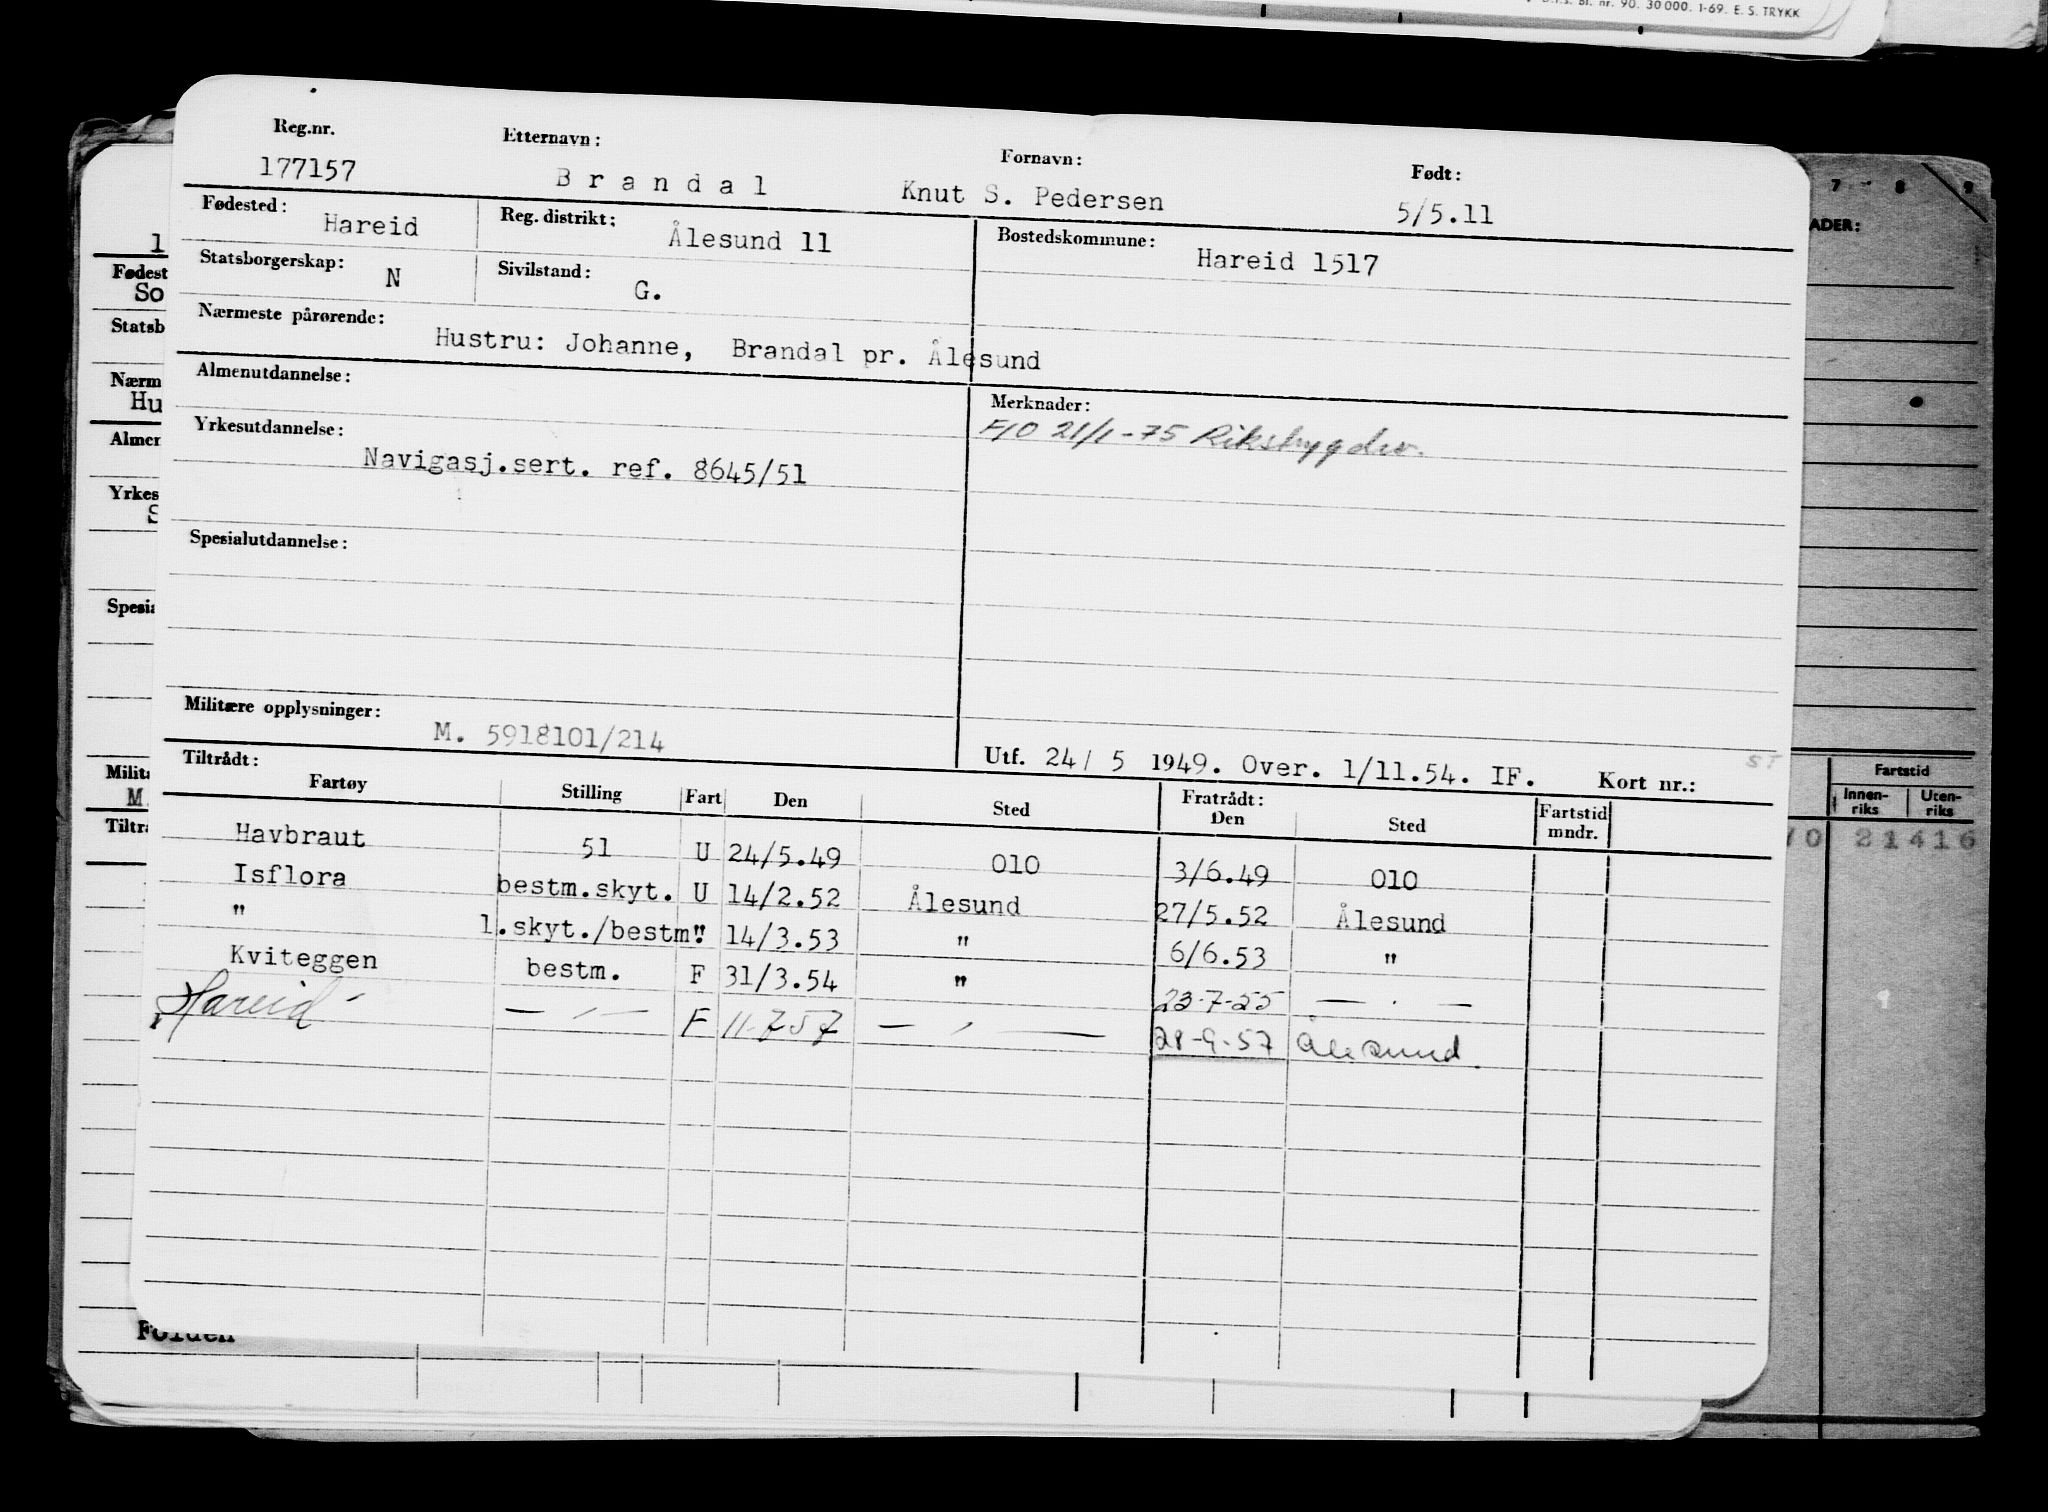 D.I.S. Bl. nr. 90. 30 000. 1-69. E. S. TRYKK
Reg.nr. Etternavn: Fornavn: Født:
177157 Brandal Knut S. Pedersen 5/5.11
Fødested: Hareid Reg. distrikt: Ålesund 11 Bostedskommune: Hareid 1517
Statsborgerskap: N Sivilstand: G.
Nærmeste pårørende: Hustru: Johanne, Brandal pr. Ålesund
Almenutdannelse: Merknader:
21/1-75
Yrkesutdannelse: Navigasj.sert. ref. 8645/51
Spesialutdannelse:
Militære opplysninger: M. 5918101/214
Utf. 24/ 5 1949. Over. 1/11.54. IF. Kort nr.: ST
Tiltrådt: Fratrådt:
Fartøy Stilling Fart Den Sted Den Sted Fartstid mndr.
Havbraut 51 U 24/5.49 010 3/6.49 010
Isflora bestm.skyt. U 14/2.52 Ålesund 27/5.52 Ålesund
" 1.skyt./bestm. " 14/3.53 " 6/6.53 "
Kviteggen bestm. F 31/3.54 " 23-7-55 — . —
Hareid — " — F 11-7-57 — " — 28-9-57 Ålesund
1
Fødest
So
Statsb
Nærm
Hu
Almen
Yrkes
S
Spesia
Milita
M.
Tiltrå
Folden
7 - 8 9
ADER:
Fartstid
Innen-riks Uten-riks
70 21416